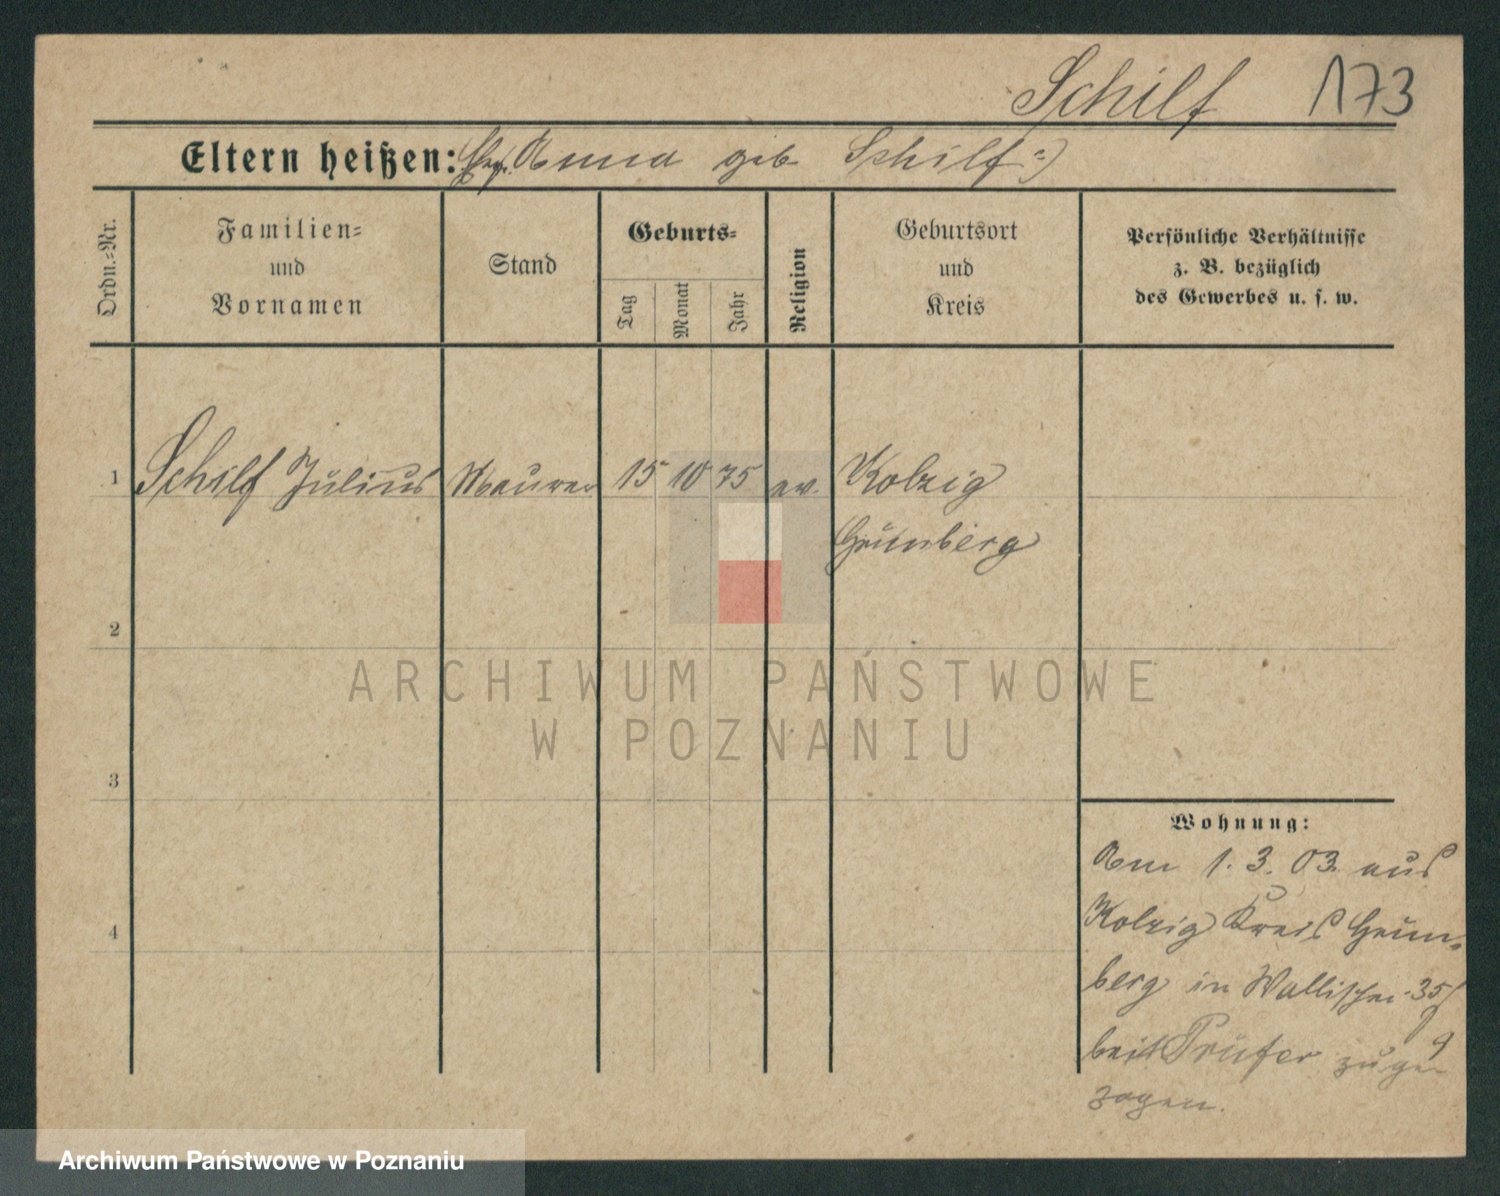 Schilf 173
Eltern heißen: Anna geb Schilf
Ordn.=Nr.
Familien=
und
Vornamen
Stand
Geburts=
Tag
Monat
Jahr
Religion
Geburtsort
und
Kreis
Persönliche Verhältnisse
z. B. bezüglich
des Gewerbes u. s. w.
1 Schilf Julius Maurer 15 10 75 ev. Kolzig
Grünberg
2
3
4
Wohnung:
Am 1. 3. 03. aus
Kolzig Kreis Grün-
berg in Wallischei 35
bei Prüfer zuge
zogen.
ARCHIWUM PAŃSTWOWE
W POZNANIU
Archiwum Państwowe w Poznaniu